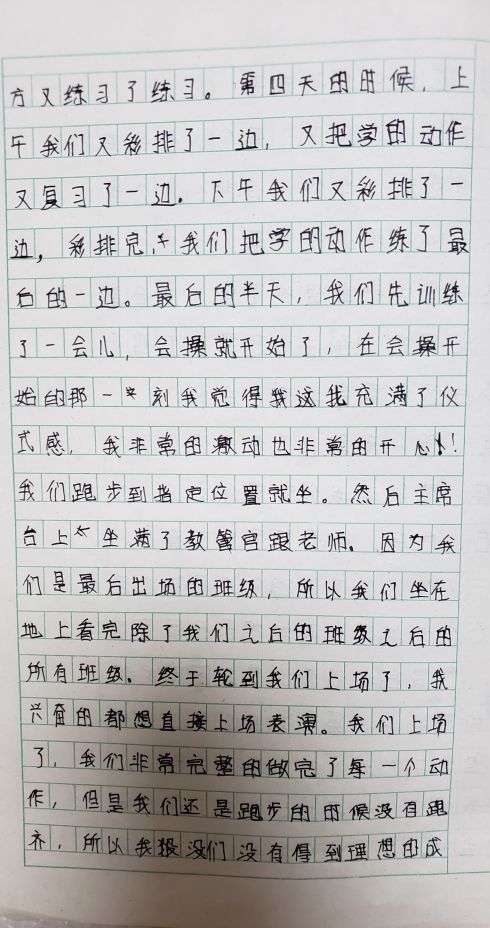 方又练习了练习。第四天的时候，上
午我们又彩排了一边，又把学的动作
又复习了一边。下午我们又彩排了一
边，彩排完我们把学的动作练了最
后的一边。最后的半天，我们先训练
了一会儿，会操就开始了，在会操开
始的那一刻我觉得我这我充满了仪
式感，我非常的激动也非常的开心！
我们跑步到指定位置就坐。然后主席
台上坐满了教管官跟老师。因为我
们是最后出场的班级，所以我们坐在
地上看完除了我们之后的班级之后的
所有班级。终于轮到我们上场了，我
兴奋的都想直接上场表演。我们上场
了，我们非常完整的做完了每一个动
作，但是我们还是跑步的时候没有跑
齐，所以我没们没有得到理想的成